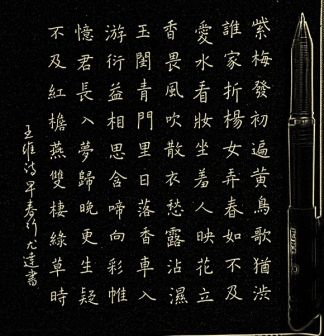 紫梅發初遍黃鳥歌猶
誰家折楊女弄春如不及
愛水看妝坐羞人映花立
香畏風吹散衣愁露沾濕
玉閨青門里日落香車入
游衍益相思含啼向彩帷
憶君長入夢歸晚更生疑
不及紅檐燕雙棲綠草時
王維诗早春行尤達書